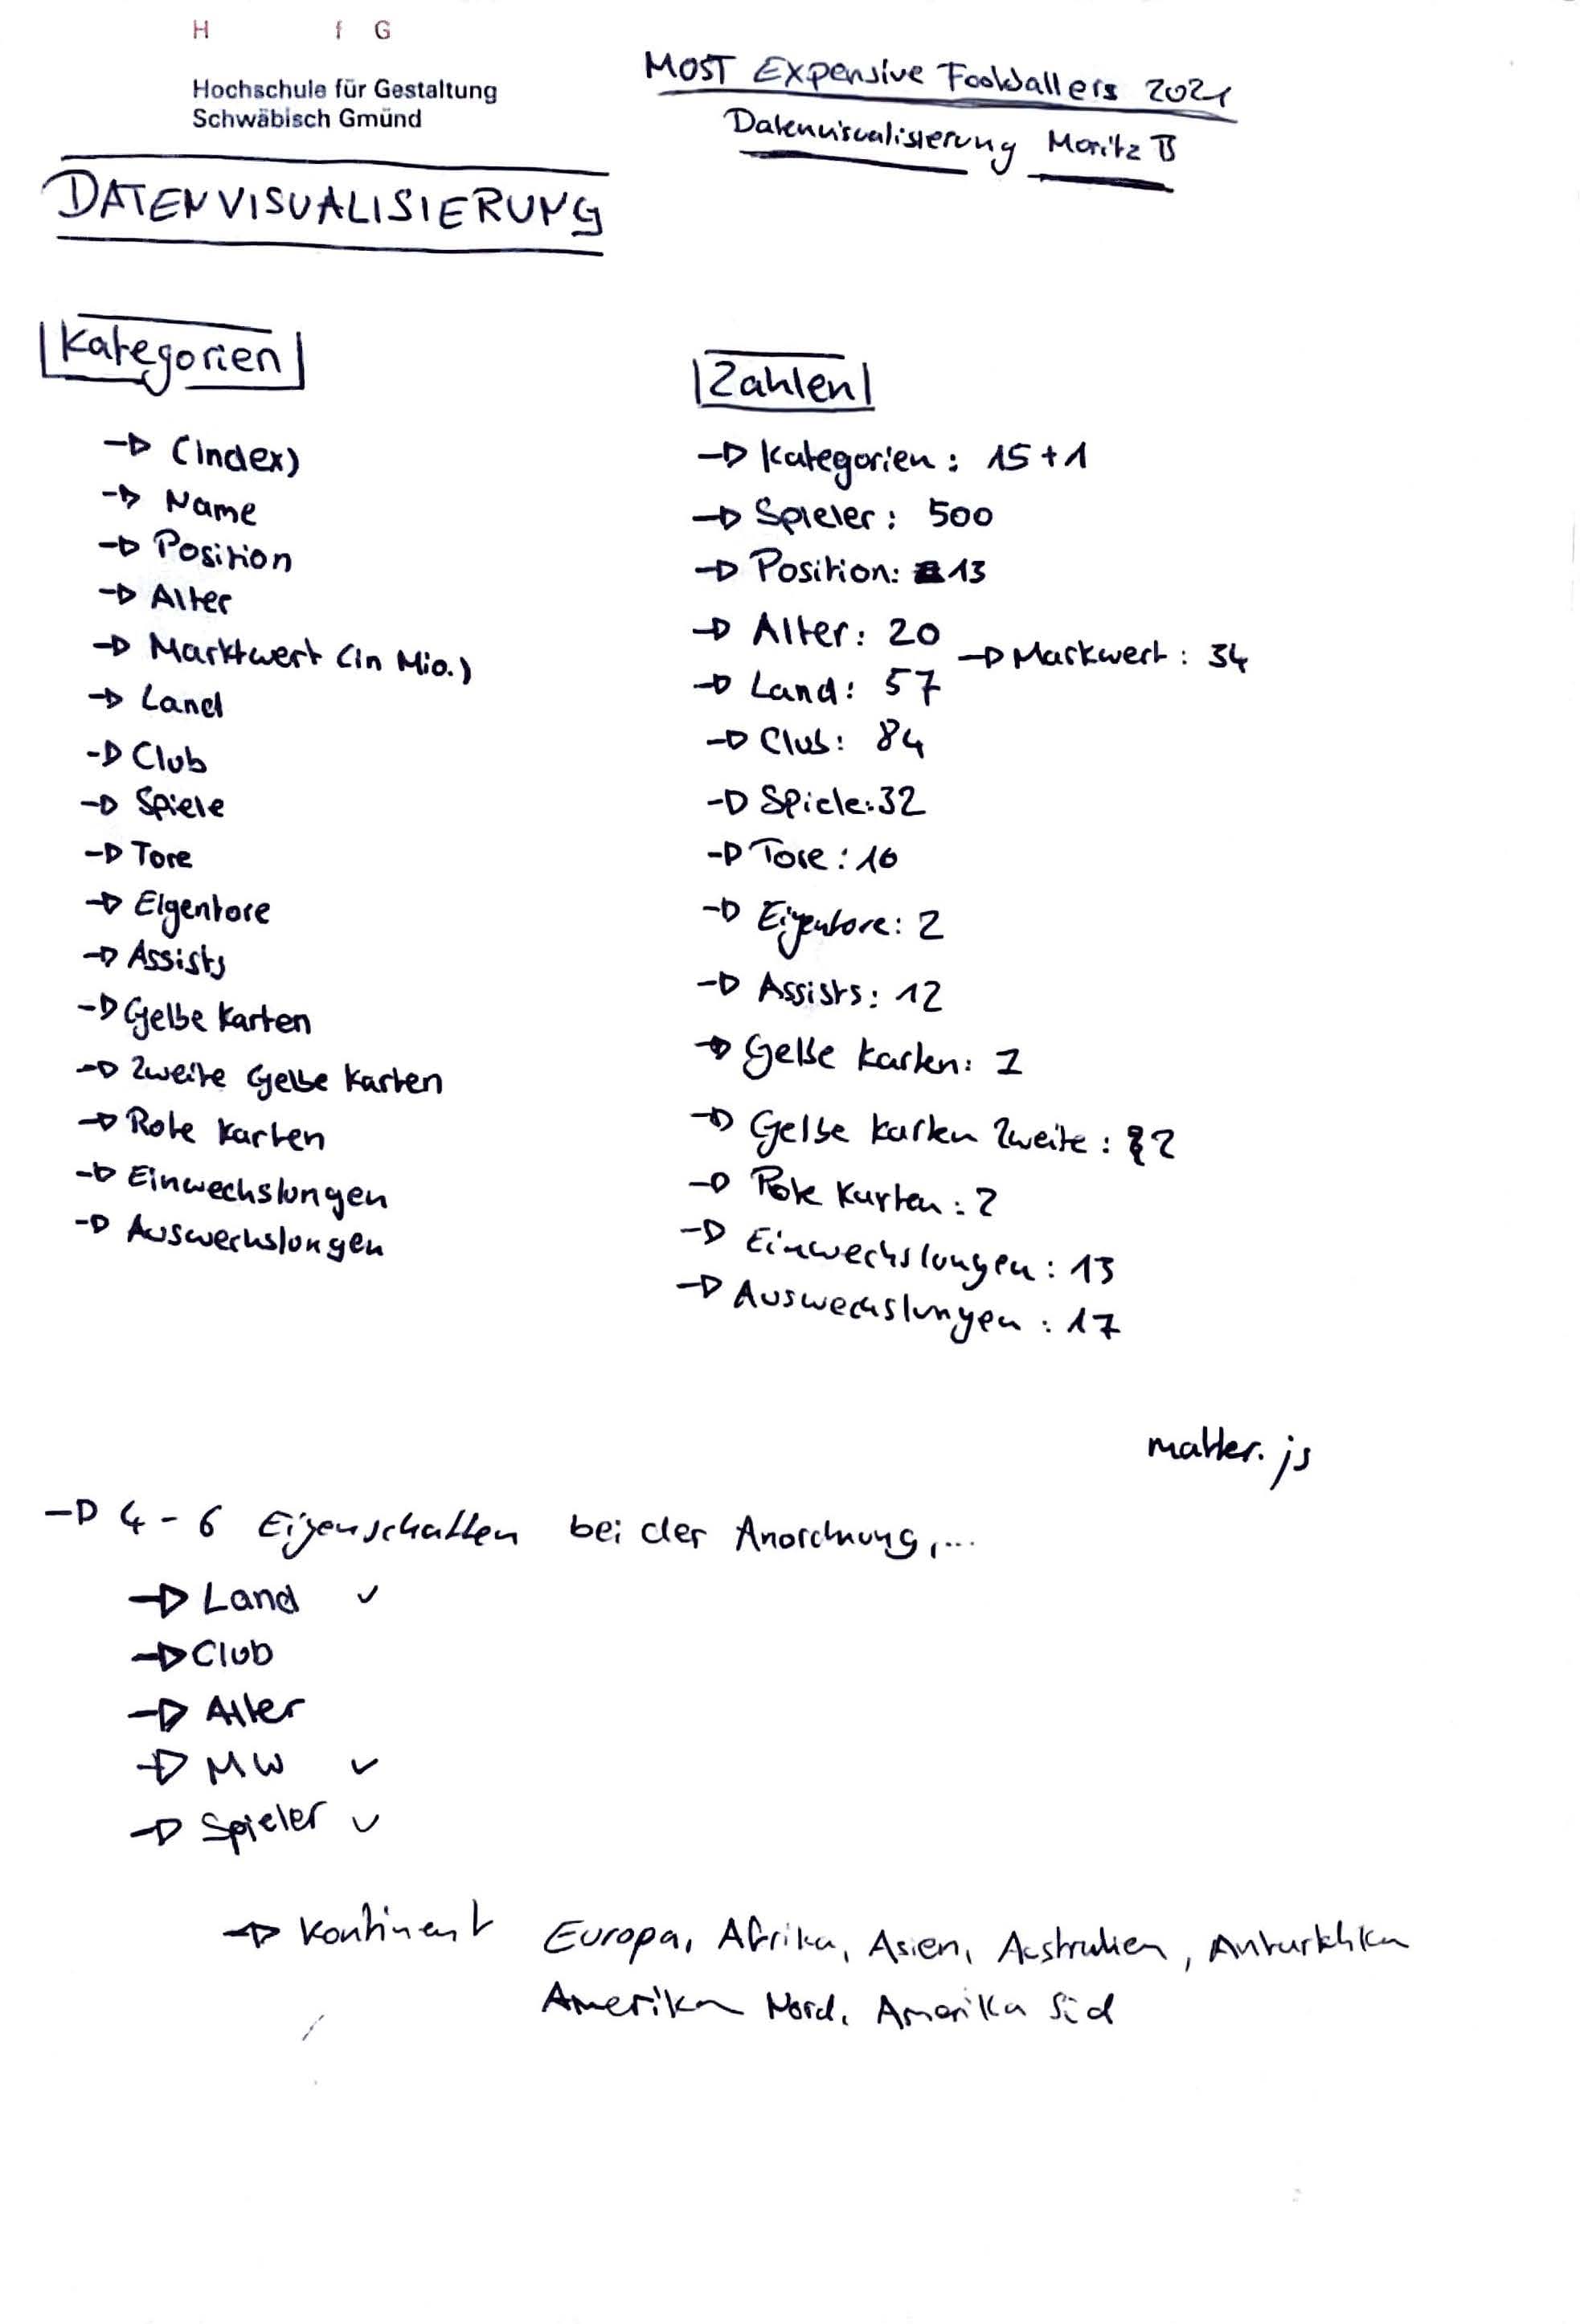 H f G
Hochschule für Gestaltung
Schwäbisch Gmünd
MOST Expensive Footballers 2021
Datenvisualisierung Moritz B
DATENVISUALISIERUNG
Kategorien
→ (Index)
→ Name
→ Position
→ Alter
→ Marktwert (in Mio.)
→ Land
→ Club
→ Spiele
→ Tore
→ Eigentore
→ Assists
→ Gelbe Karten
→ Zweite Gelbe Karten
→ Rote Karten
→ Einwechslungen
→ Auswechslungen
Zahlen
→ Kategorien: 15+1
→ Spieler: 500
→ Position: 13
→ Alter: 20
→ Markwert: 34
→ Land: 57
→ Club: 84
→ Spiele: 32
→ Tore: 16
→ Eigentore: 2
→ Assists: 12
→ Gelbe Karten:
→ Gelbe Karten Zweite: 2
→ Rote Karten: 2
→ Einwechslungen: 13
→ Auswechslungen: 17
matter.js
→ 4-6 Eigenschaften bei der Anordnung,...
→ Land ✓
→ Club
→ Alter
→ MW ✓
→ Spieler ✓
→ Kontinent Europa, Afrika, Asien, Australien, Antarktika
Amerika Nord, Amerika Süd